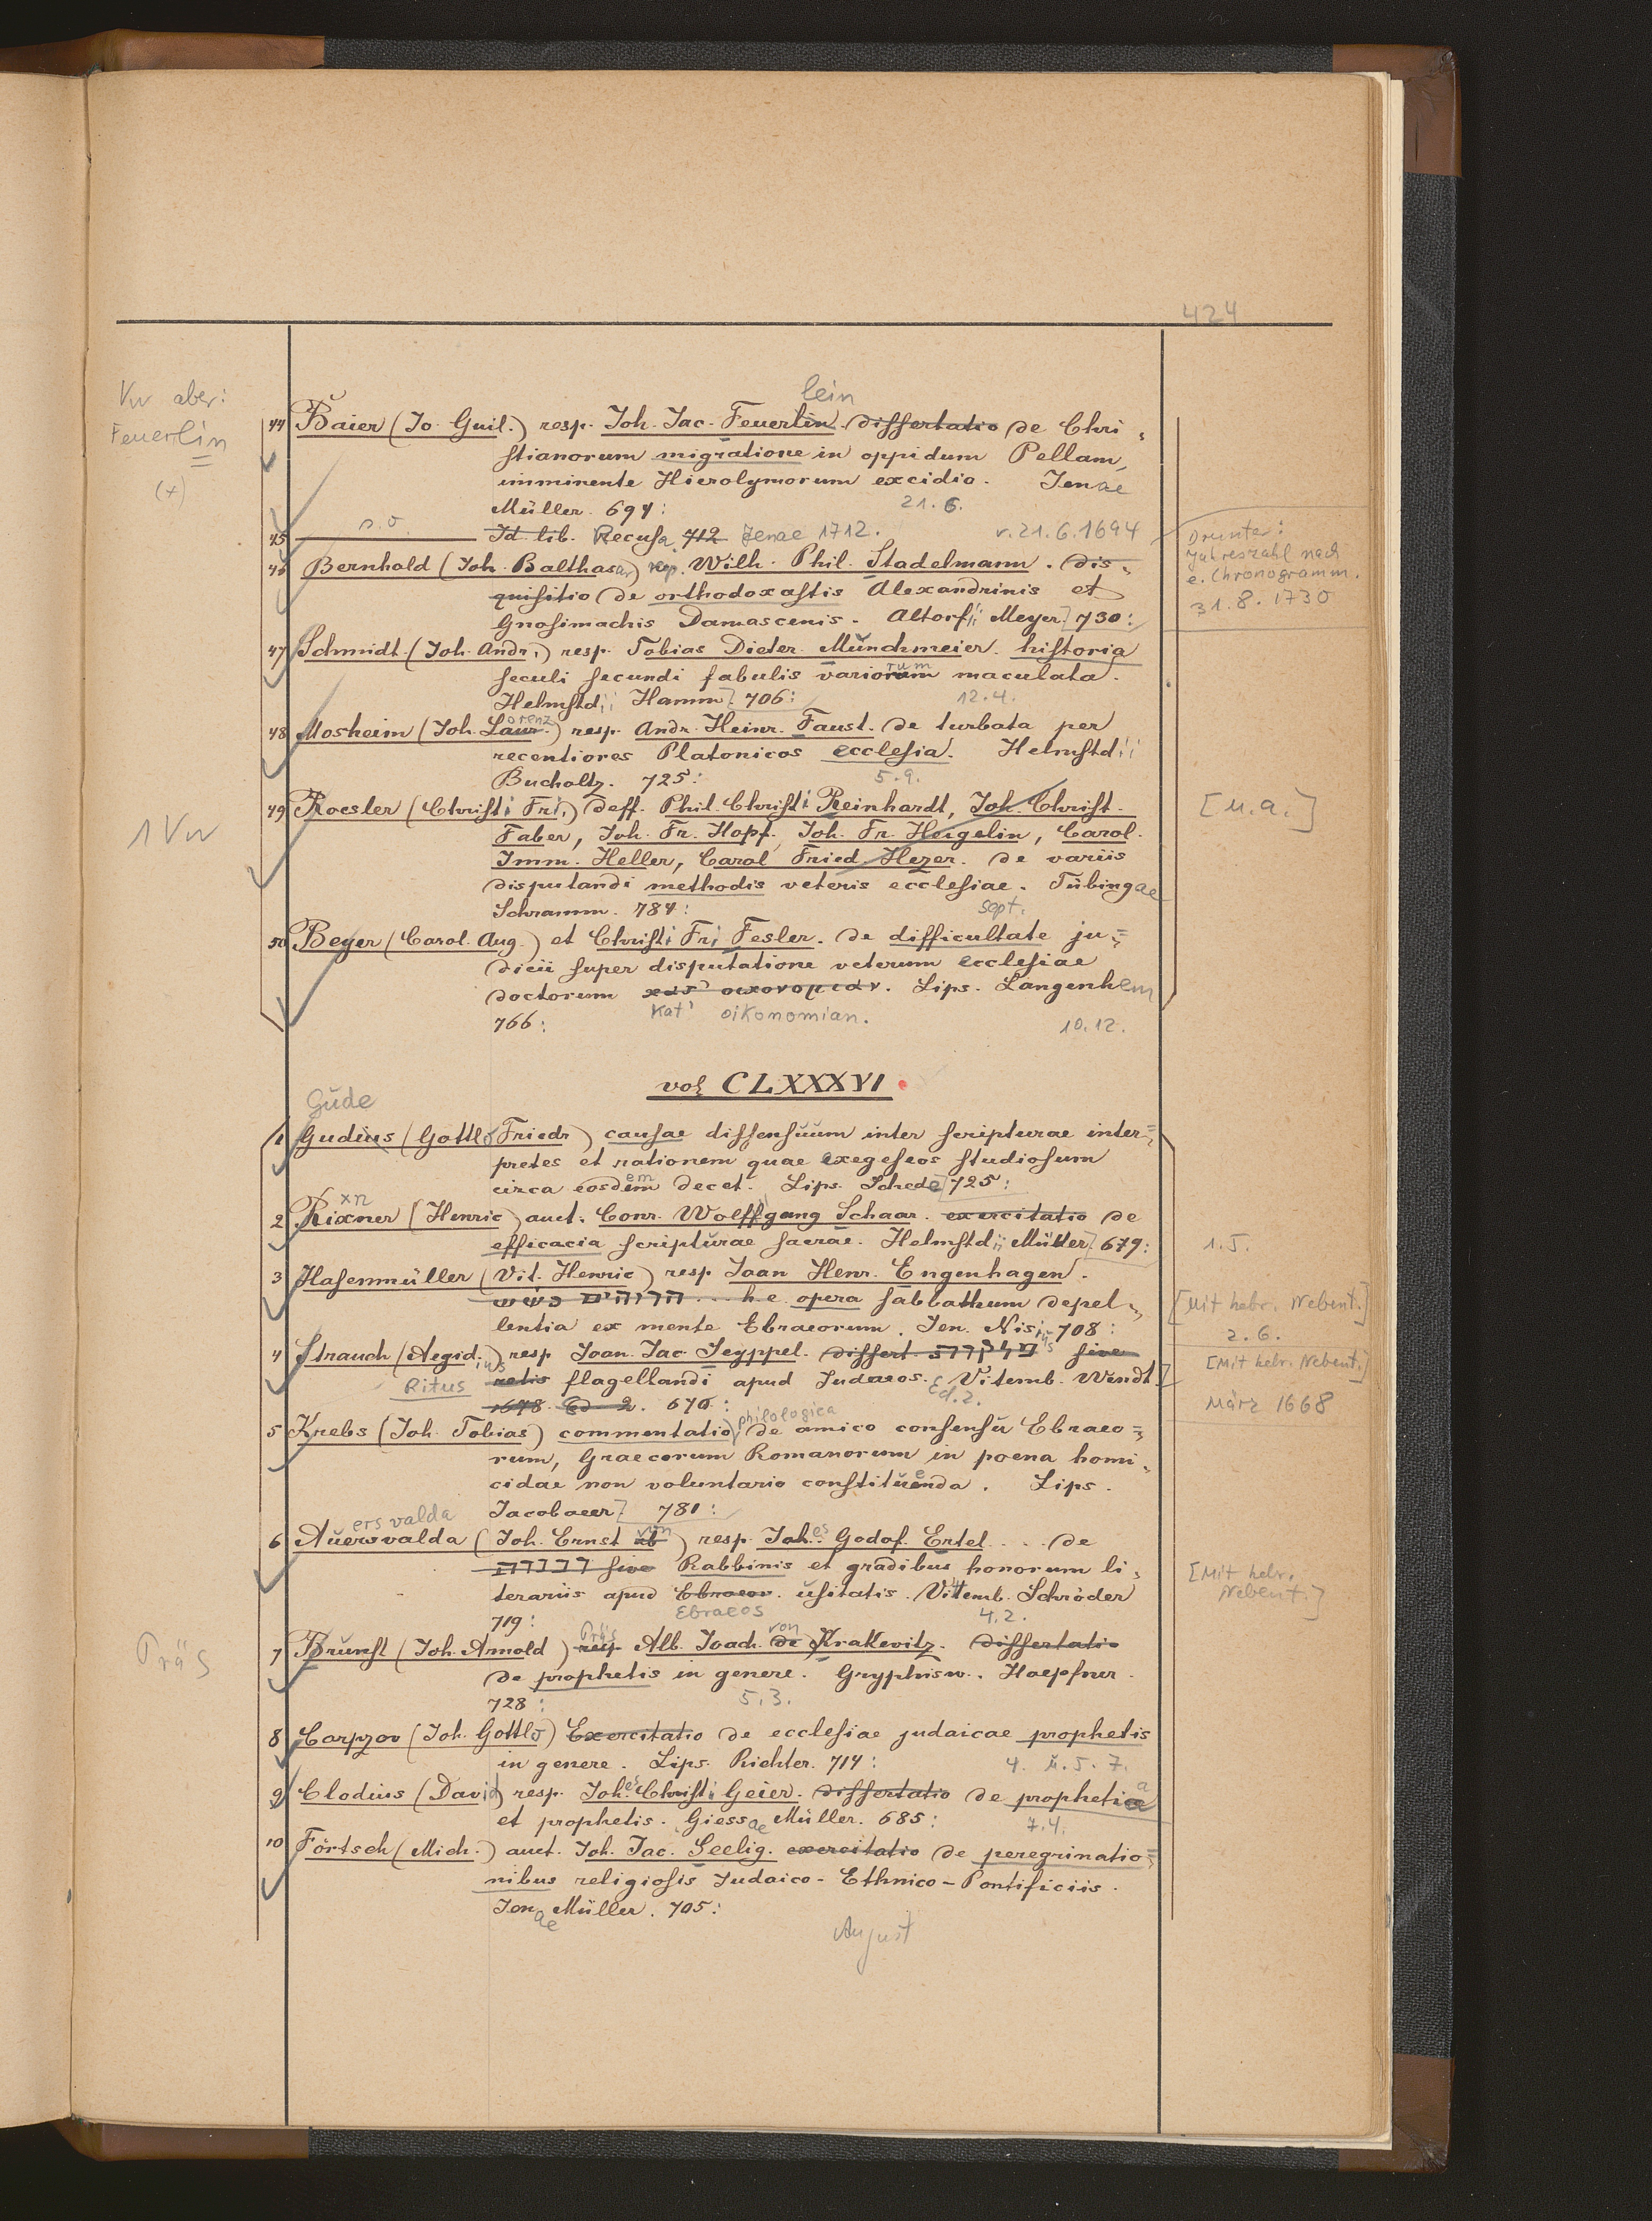 424
lein
Vw aber:
Feuerlin
(+)
44 Baier (Jo. Guil.) resp. Joh. Jac. Feuerlin. dissertatio de Chri-
stianorum migratione in oppidum Pellam,
imminente Hierolymorum excidio. Jenae
Müller. 694: 21.6.
45 s.o. Id. lib. Recusa 712 Jenae 1712. v. 21.6.1694
Drunter:
Jahreszahl nach
e. Chronogramm.
31.8.1730
46 Bernhold (Joh. Balthasar) resp. Wilh. Phil. Stadelmann. Dis-
quisitio de orthodoxastis Alexandrinis et
Gnosimachis Damascenis. Altorfii Meyer] 730:
47 Schmidt (Joh. Andr.) resp. Tobias Dieter. Münchmeier. historia
seculi secundi fabulis variorum maculata.
Helmstd. Hamm]. 706: 12.4.
48 Mosheim (Joh. Laur. orenz) resp. Andr. Heinr. Faust. de turbata per
recentiores Platonicos ecclesia. Helmstdii
Bucholtz. 725: 5.9.
49 Roesler (Christi Fri.) deff. Phil. Christi Reinhardt, Joh. Christ.
Faber, Joh. Fr. Hopf, Joh. Fr. Hoegelin, Carol.
Imm. Heller, Carol Fried. Hezer. de variis
disputandi methodis veteris ecclesiae. Tübingae
Schramm. 784: Sept.
1 Vw
[u.a.]
50 Beyer (Carol. Aug.) et Christi Fri Fesler. de difficultate ju=
dicii super disputatione veterum ecclesiae
doctorum κατ' οικονομιαν. Lips. Langenhem
Kat' oikonomian.
766: 10.12.
vol CLXXXVI.
Güde
1 Gudius (Gottlo Friedr) causae dissensuum inter scripturae inter=
pretes et rationem quae exegeseos studiosum
circa eosdem decet. Lips. Schede] 725:
xn
2 Rixner (Henric) auct. Conr. Wolffgang Schaar. exercitatio de
efficacia scripturae sacrae. Helmstdii Müller] 679:
1.5.
3 Hasenmüller (Vit. Henric) resp Joan Henr. Engenhagen.
h.e. opera sabbathum depel-
lentia ex mente Ebraeorum. Jen. Nisius 708:
[Mit hebr. Nebent.]
2.6.
4 Strauch (Aegid.ius) resp Joan. Jac. Jeyppel. dissert. sive
Ritus flagellandi apud Judaeos. Vitemb. Wendt.]
1678. Ed 2. 670: Ed.2.
[Mit hebr. Nebent.]
März 1668
5 Krebs (Joh. Tobias) commentatio philologica de amico consensu Ebraeo=
rum, Graecorum Romanorum in poena homi-
cidae non voluntario constituenda. Lips.
Jacobaeer] 781:
ersvalda
6 Auersvalda (Joh. Ernst ab von) resp. Joh.es Godof. Ertel.... de
sive Rabbinis et gradibus honorum li-
terariis apud Ebraeor. usitatis. Vittemb. Schröder
719: Ebraeos 4.2.
[Mit hebr.
Nebent.]
Präs
7 Brunst (Joh. Arnold) resp Präs Alb. Joach. de von Krakevitz. dissertatio
de prophetis in genere. Gryphisw. Hoepfner.
728: 5.3.
8 Carpzov (Joh. Gottlo) Exercitatio de ecclesiae judaicae prophetis
in genere. Lips. Richter. 714: 4. u. 5. 7.
9 Clodius (David) resp. Joh.es Christi Geier. dissertatio de prophetia
et prophetis. Giessae Müller. 685: 7.4.
10 Förtsch (Mich.) auct. Joh. Jac. Seelig. exercitatio de peregrinatio=
nibus religiosis Judaico-Ethnico-Pontificiis.
Jenae Müller. 705:
August